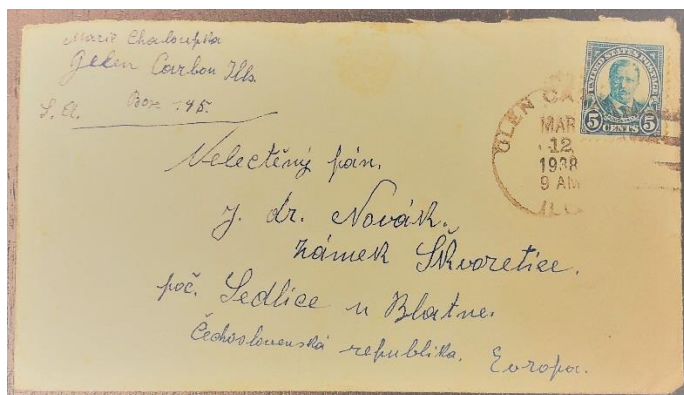 Marie Chaloupka
Gelen Carbon Ills.
S. A. Box 195.
UNITED STATES POSTAGE
5 CENTS 5
GLEN CA
MAR
12
1938
9 AM
ILL
Velectěný pán.
J. dr. Novák.
zámek Škvoretice.
poč. Sedlice u Blatne.
Československá republika. Evropa.